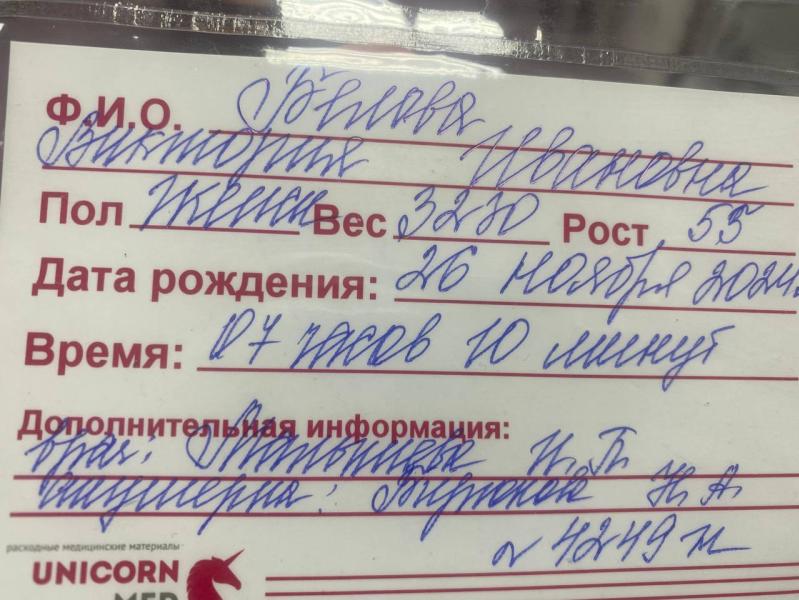 Ф.И.О. Белова
Виктория Ивановна
Пол женск Вес 3270 Рост 55
Дата рождения: 26 ноября 2024г.
Время: 07 часов 10 минут
Дополнительная информация:
врач: Н.П.
акушерка: Н.А.
~ 4249 м
расходные медицинские материалы
UNICORN
MED